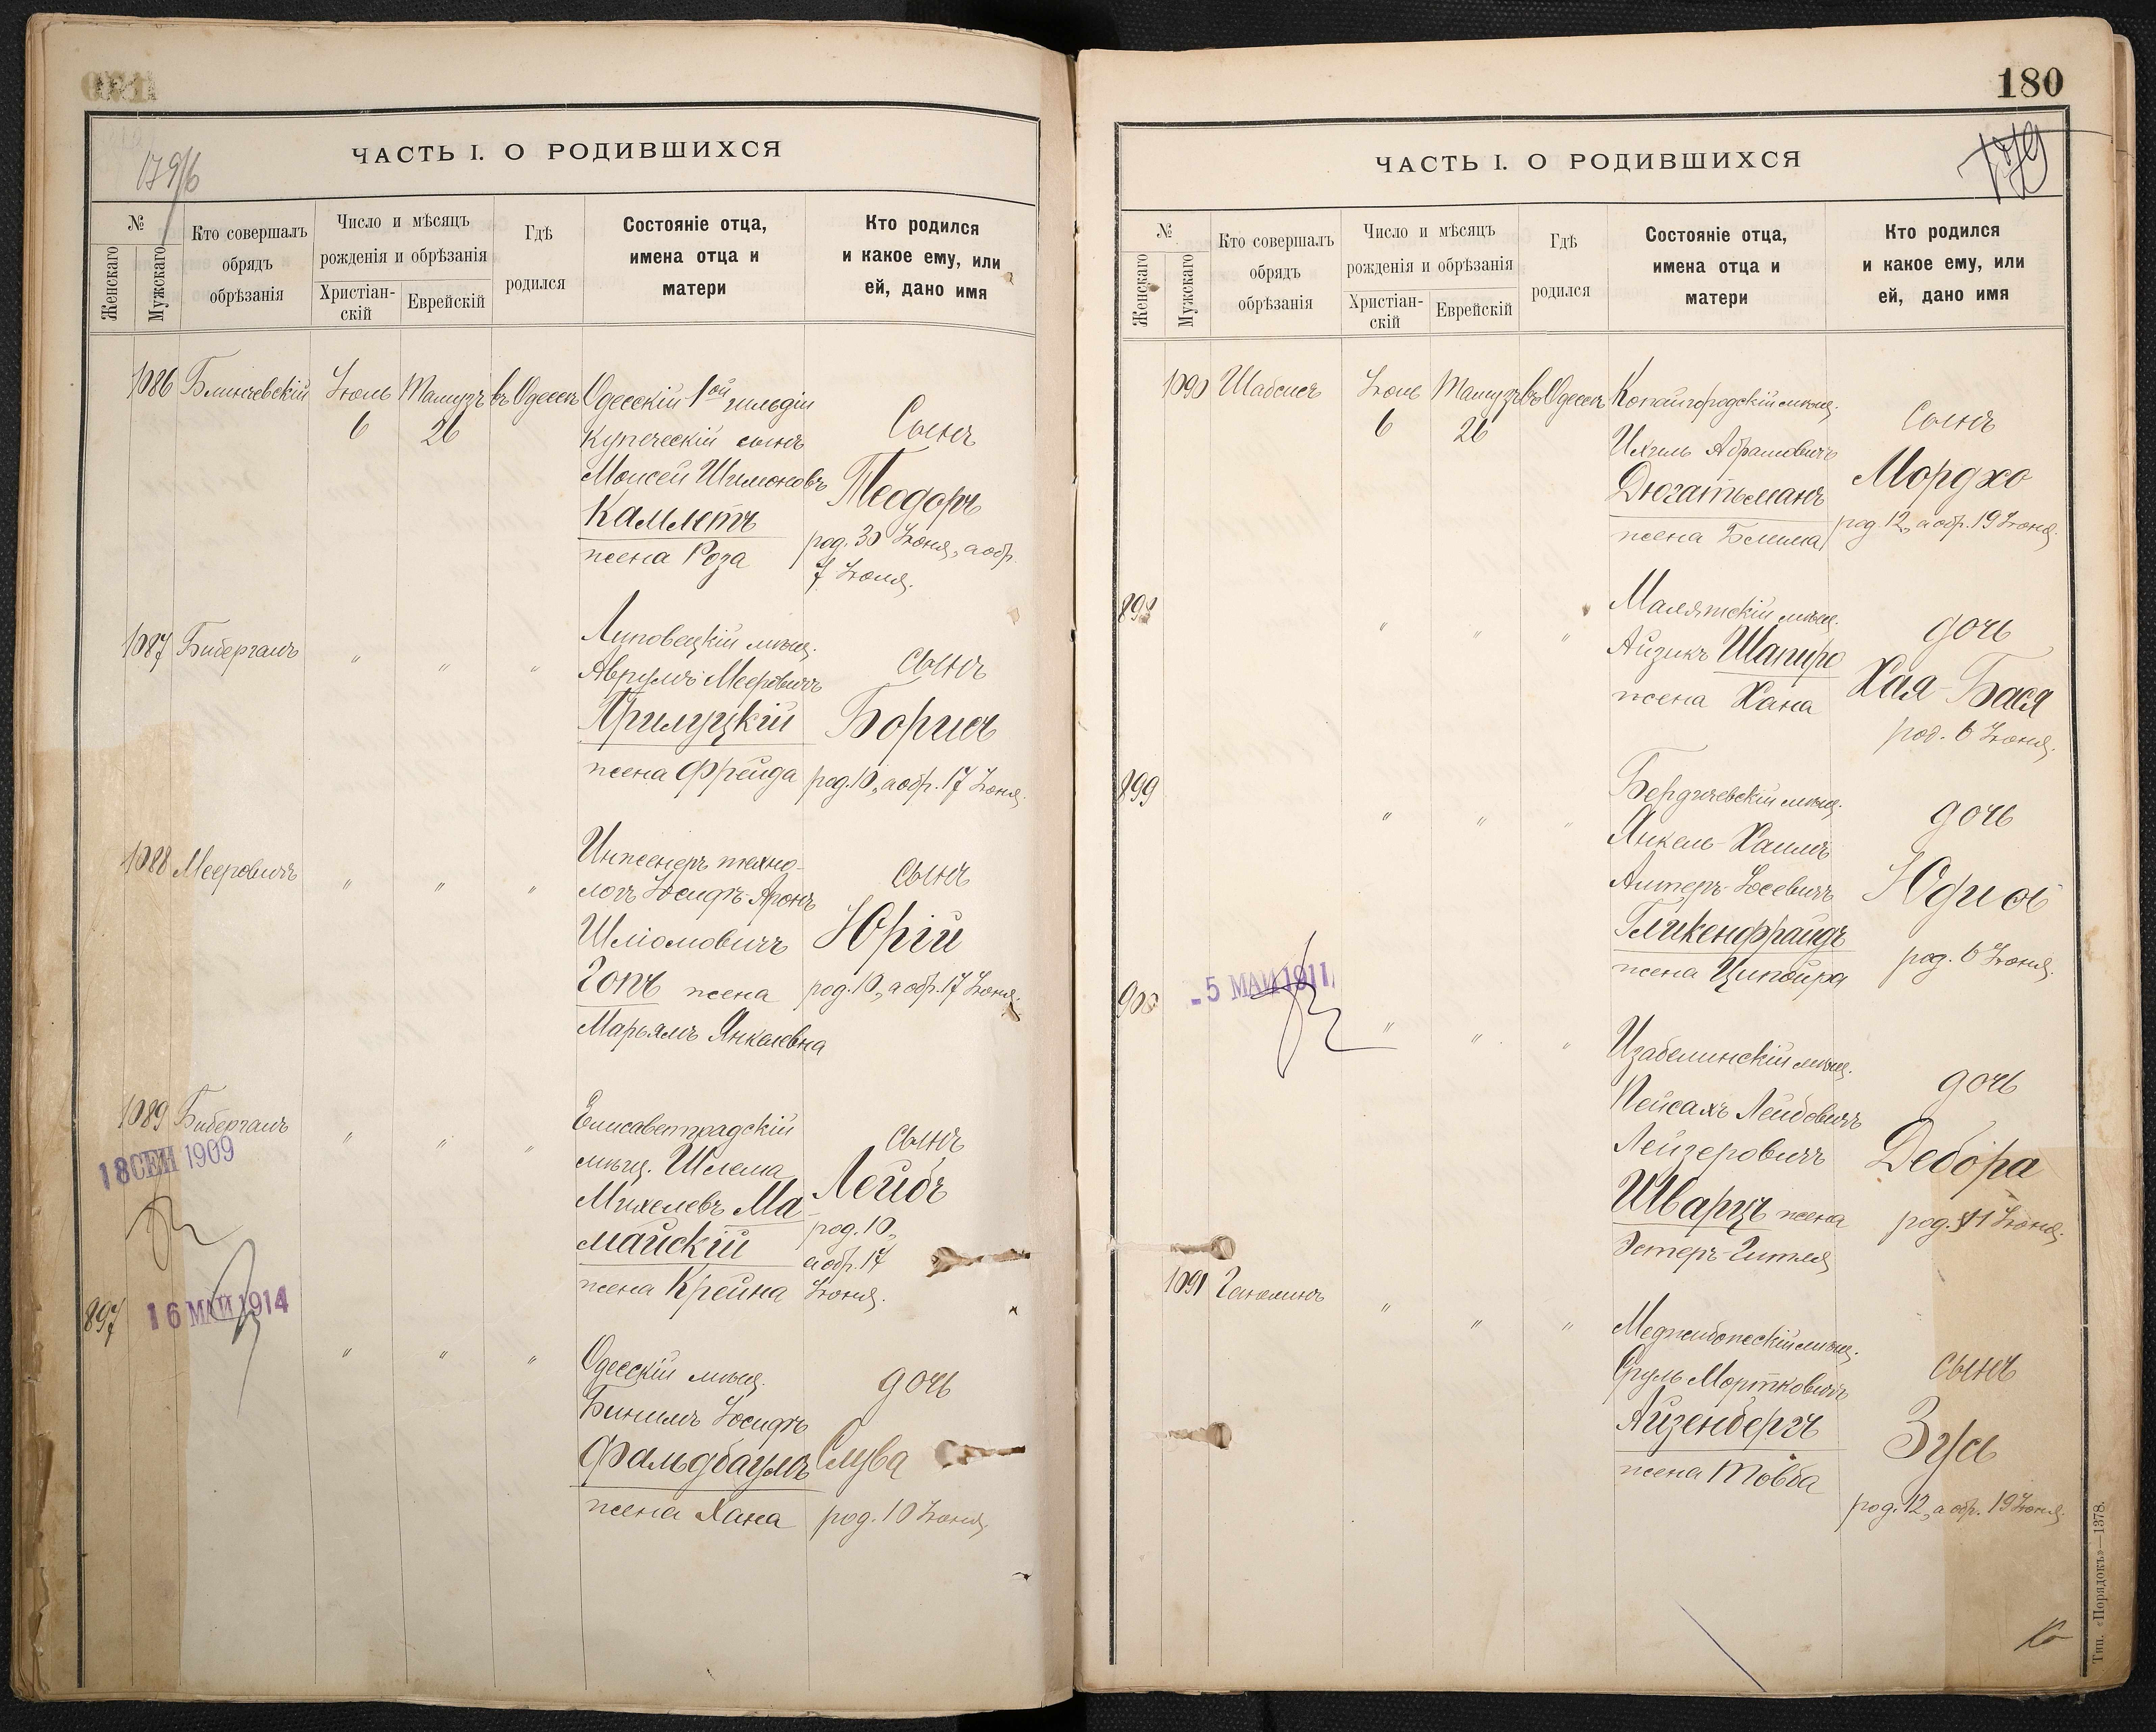 ЧАСТЬ I. О РОДИВШИХСЯ
179/б
№
Женскаго
Мужскаго
Кто совершалъ
обрядъ
обрѣзанія
Число и мѣсяцъ
рожденія и обрѣзанія
Христіан-
скій
Еврейскій
Гдѣ
родился
Состояніе отца,
имена отца и
матери
Кто родился
и какое ему, или
ей, дано имя
1086 Блинчевскій Іюль Тамузъ въ Одессѣ Одесскій 1ой гильдіи
6 26 купеческій сынъ Сынъ
Моисей Шимоновъ Теодоръ
Камметъ род. 30 Іюня, а обр.
жена Роза 7 Іюля.
1087 Бибергалъ " " " Липовецкій мѣщ. сынъ
Аврумъ Мееровичъ
Прилуцкій Борисъ
жена Фрейда род. 10, а обр. 17 Іюня.
1088 Мееровичъ " " " Инженеръ техно- сынъ
логъ Іосифъ-Аронъ
Шліомовичъ Юрій
Гопъ жена род. 10, а обр. 17 Іюня.
Марьямъ Янкелевна
1089 Бибергалъ " " " Елисаветградскій сынъ
18 СЕН 1909
мѣщ. Шлема Лейбъ
Михелевъ Ма- род. 10,
майскій а обр. 17
жена Крейна Іюня.
897 16 МАЙ 1914
" " " Одесскій мѣщ. дочь
Бинимъ Іосифъ
Фальдбаумъ Слува
жена Хана род. 10 Іюня.
180
179
ЧАСТЬ I. О РОДИВШИХСЯ
№
Женскаго
Мужскаго
Кто совершалъ
обрядъ
обрѣзанія
Число и мѣсяцъ
рожденія и обрѣзанія
Христіан-
скій
Еврейскій
Гдѣ
родился
Состояніе отца,
имена отца и
матери
Кто родился
и какое ему, или
ей, дано имя
1090 Шабсисъ Іюль Тамузъ въ Одессѣ Копайгородскій мѣщ.
6 26 Ихиль Абрамовичъ Сынъ
Дюгатьманъ Мордхо
жена Блима род. 12, а обр. 19 Іюня.
898 " " " Малятскій мѣщ. дочь
Айзикъ Шапиро Хая-Бася
жена Хана род. 6 Іюня.
899 " " " Бердичевскій мѣщ. дочь
Янкель-Хаимъ
Алтеръ-Іосевичъ Юдись
Гликенфрайдъ род. 6 Іюня.
жена Ципойра
900 - 5 МАЙ 1911
" " " Изабелинскій мѣщ. дочь
Пейсахъ Лейбовичъ
Лейзеровичъ Дебора
Шварцъ жена род. 11 Іюня.
Эстеръ-Гитля
1091 Ганжинъ " " " Меджибожескій мѣщ. сынъ
Сруль Мортковичъ
Айзенбергъ Зусь
жена Товба род. 12, а обр. 19 Іюня.
Тип. «Порядокъ»—1378.